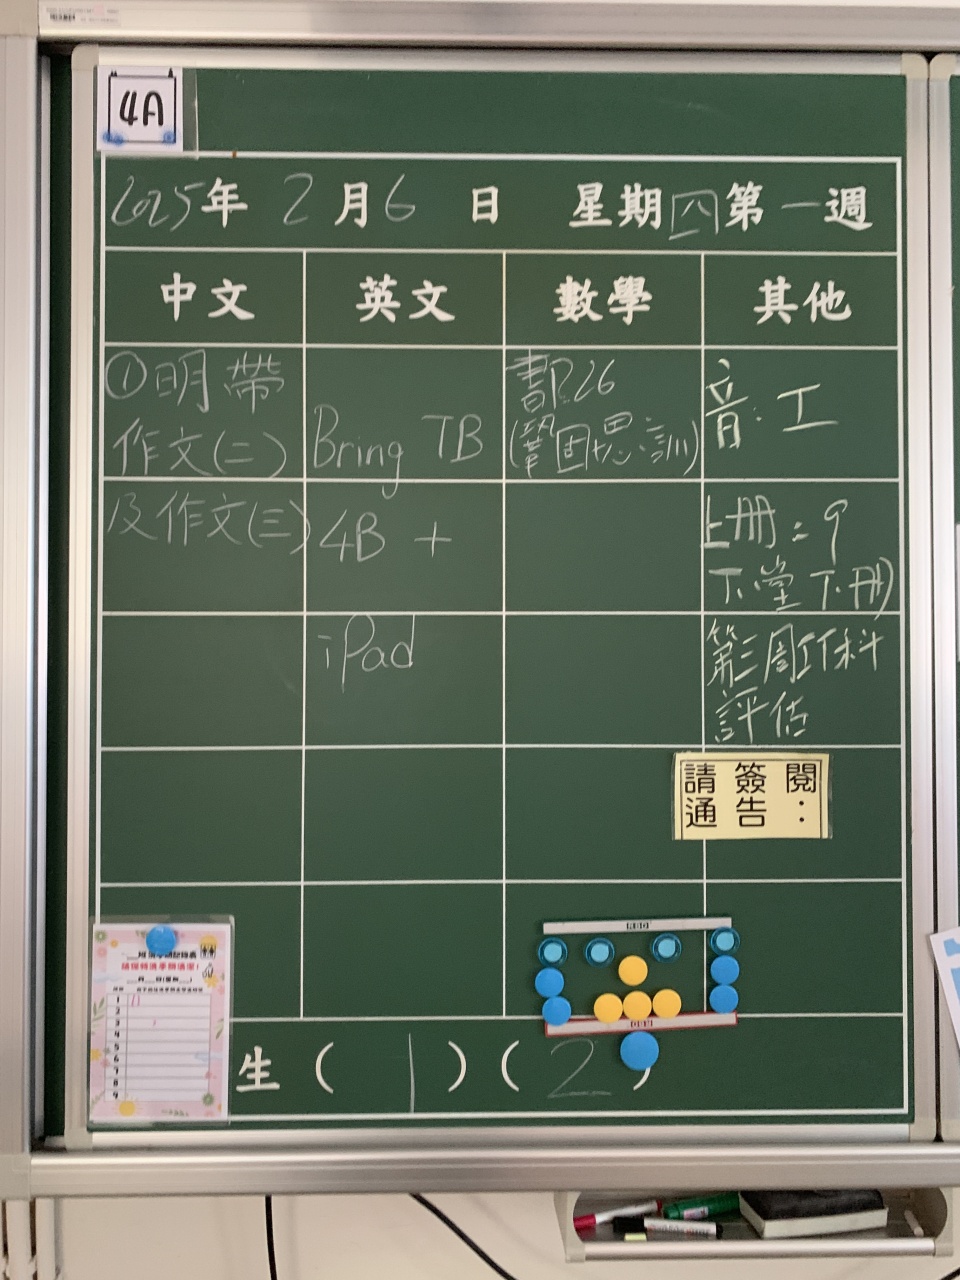 4A
2025年 2月6日 星期四第一週
中文 英文 數學 其他
①明帶
作文(二)
及作文(三)
Bring TB
4B +
iPad
書P.26
(鞏固思訓)
音:工
上冊:9
下堂下冊)
第三周IT科
評估
請簽閱
通告:
生( 1 )( 2 )